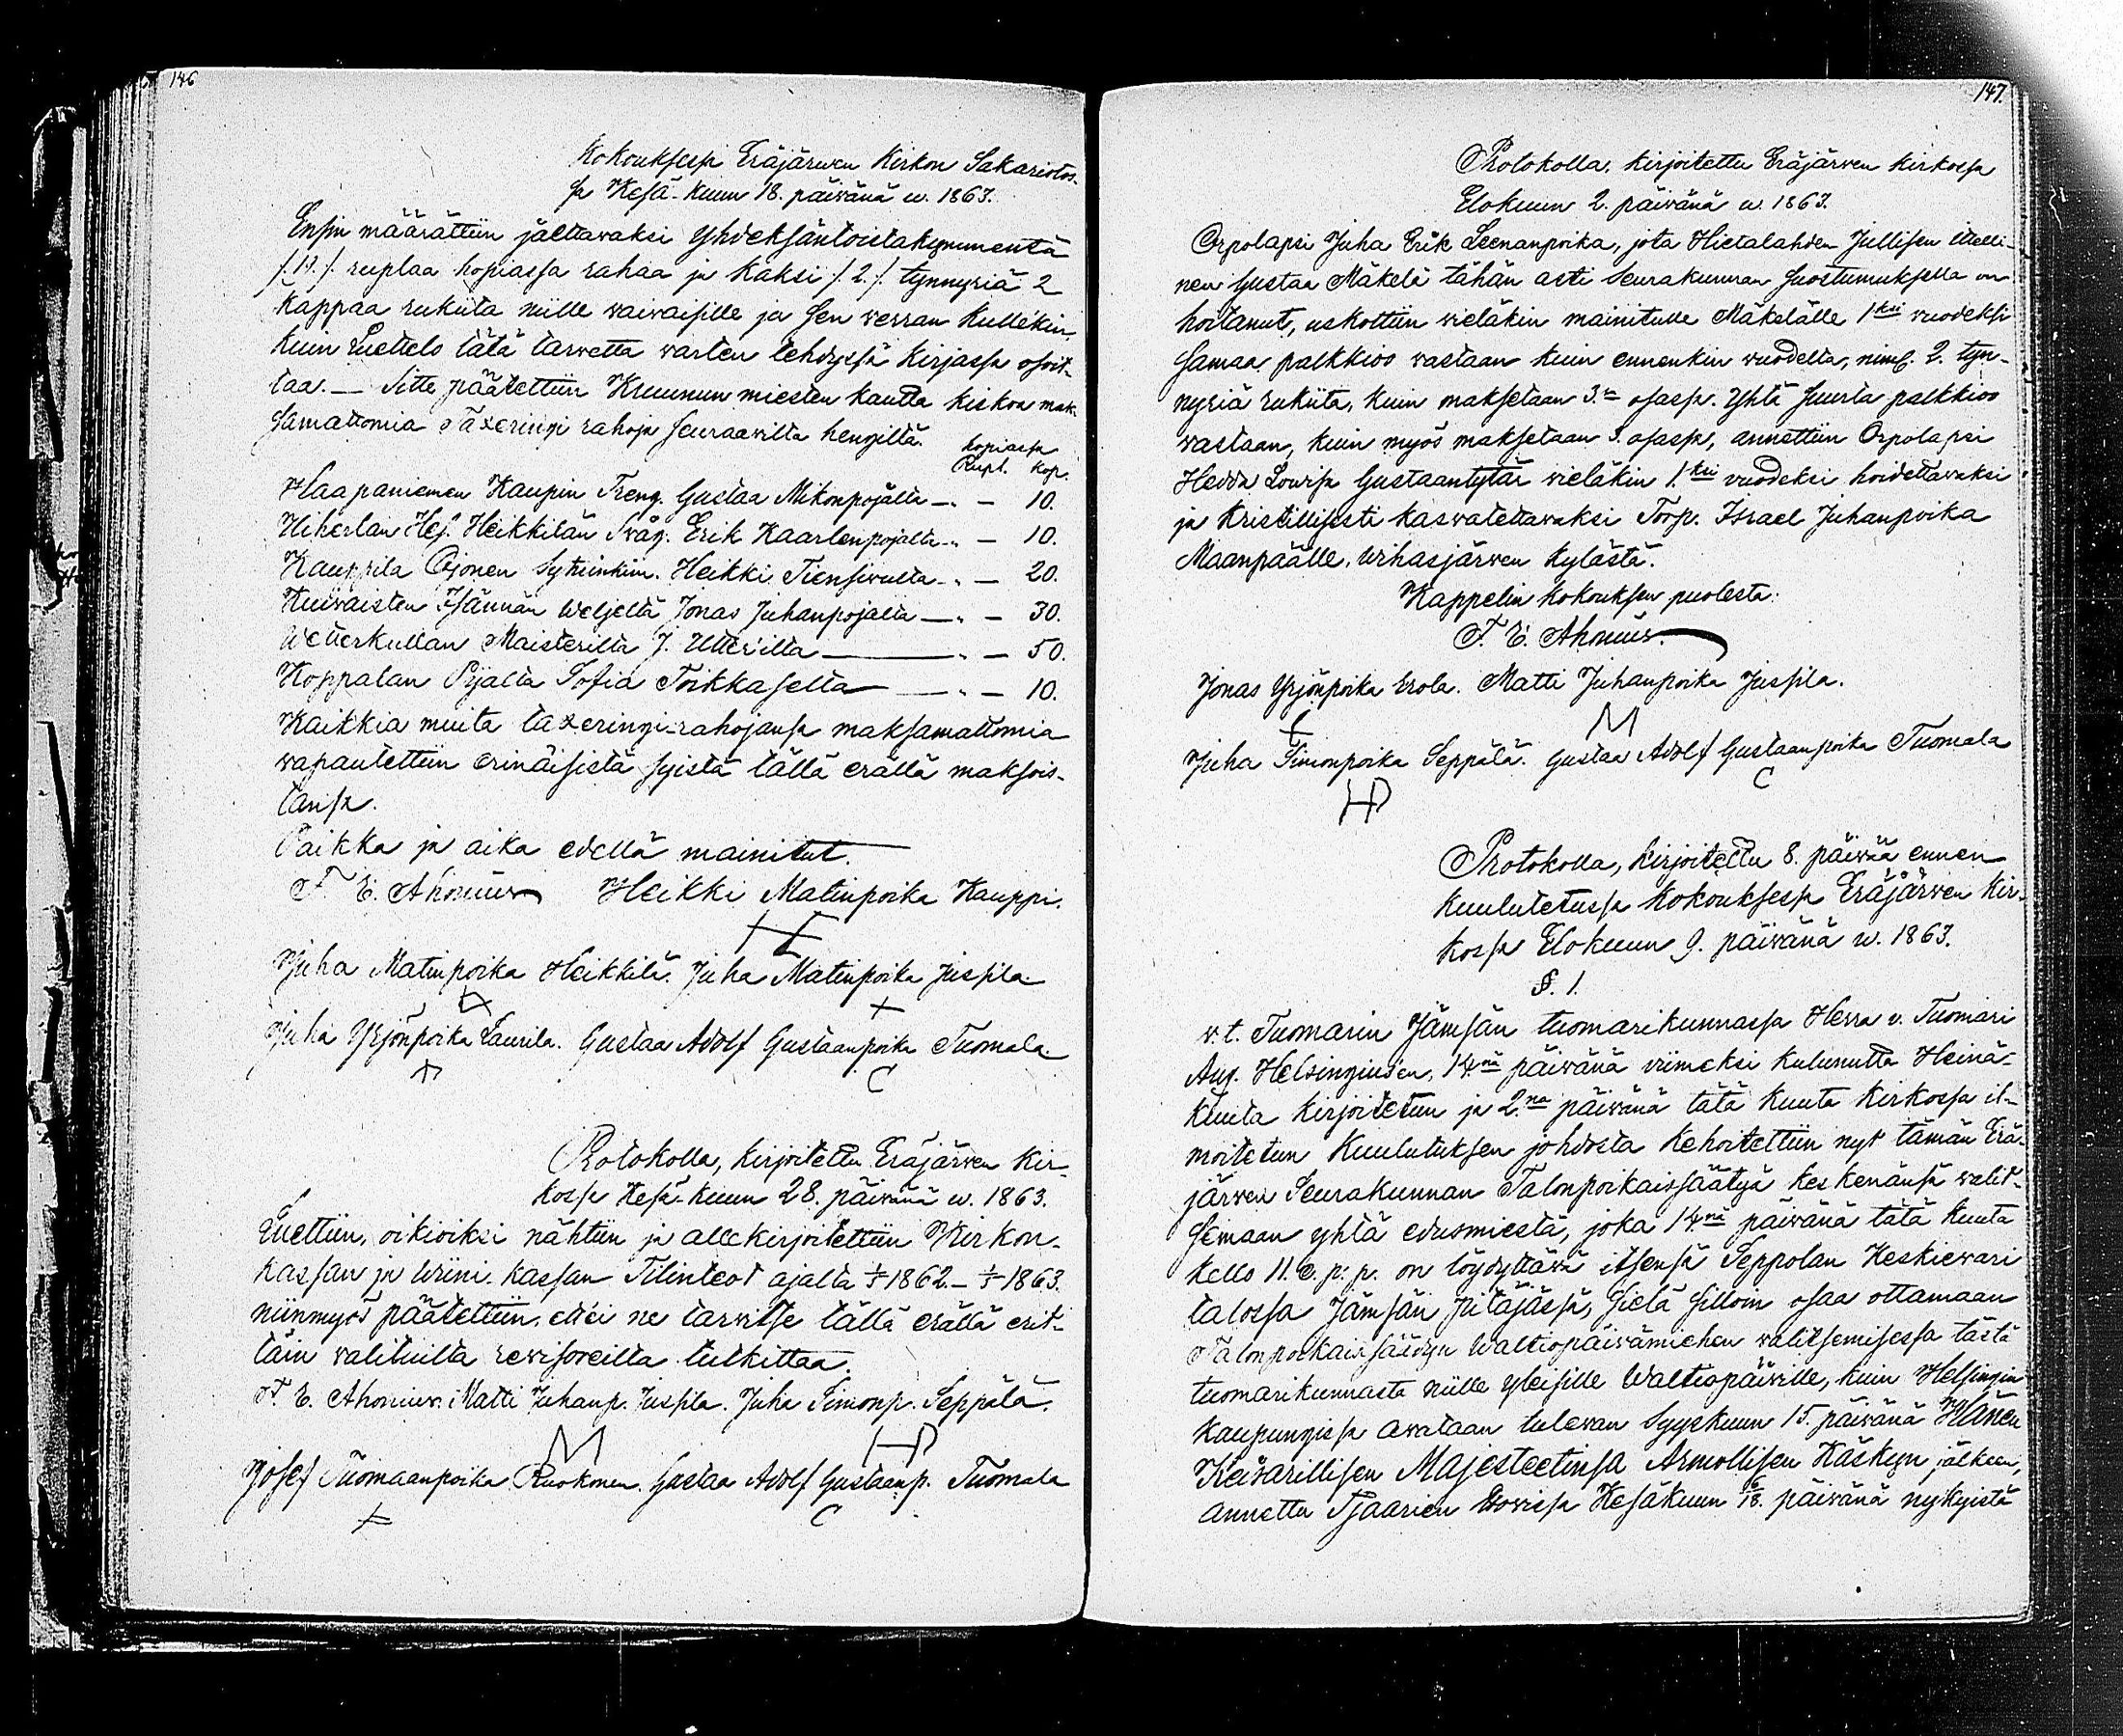 146
Kokouksessa Eräjärwen Kirkon Sakariotos-
sa Kesä-kuun 18. päivänä w. 1863.
Ensin määrättiin jäettäwaksi Yhdeksäntoistakymmentä
/.19./. ruplaa hopiassa rahaa ja kaksi /.2./. tynnyriä 2
kappaa rukiita niille waiwaisille ja sen werran kullekin,
kuin Luettelo tätä tarwetta warten tehdyssä kirjassa osoit-
taa. — Sitte päätettiin Kruunun miesten kautta kiskoa mak-
samattomia Taxeringi rahoja seuraawilta hengiltä.
hopiassa
Rupl. kop.
Haapaniemen Kaupin Treng. Gustaa Mikonpojalta —„— 10.
Hiherlän Hej. Heikkilän Swåg. Erik Kaarlenpojalta „— 10.
Kauppila Ojonen Sytninkim. Heikki Tiensiwulta „— 20.
Kuiwaisten Isännän Weljeltä Jonas Juhanpojalta —„— 30.
Wetterkullan Maisterilta J. Utter'ilta —„— 50.
Hoppalan Pijalta Sofia Toikkaselta —„— 10.
Kaikkia muita taxeringi-rahojansa maksamattomia
wapautettiin erinäisistä syistä tällä erällä maksois-
tansa.
Paikka ja aika edellä mainitut.
F. E. Ahonius Heikki Matinpoika Kauppi.
Juha Matinpoika Heikkilä. Juha Matinpoika Jussila.
Juha Yrjönpoika Laurila. Gustaa Adolf Gustaanpoika Tuomala.
C
Protokolla, kirjoitettu Eräjärwen Kir-
kossa Kesä-kuun 28. päiwänä w. 1863.
Luettiin, oikioiksi nähtiin ja allekirjoitettiin Kirkon-
kassan ja Wiini kassan Tilinteot ajalta 1/5 1862 – 1/5 1863.
niinmyös päätettiin, ett'ei ne tarwitse tällä erällä erit-
täin walituilta rewisoreilta tutkittaa.
F. E. Ahonius. Matti Juhanp. Jussila. Juha Simonp. Seppälä.
M HP
Josef Tuomaanpoika Ruokonen. Gustaa Adolf Gustaanp. Tuomala
C
147.
Protokolla, kirjoitettu Eräjärwen kirkossa
Elokuun 2. päiwänä w. 1863.
Orpolapsi Juha Erik Leenanpoika, jota Hietalahden Jullisen Melli-
nen Gustaa Mäkelä tähän asti Seurakunnan suostumuksella on
hoitanut, uskottiin wieläkin mainitulle Mäkelälle 1ksi wuodeksi
samaa palkkioo wastaan kuin ennenkin wuodelta, niml. 2. tyn-
nyriä rukiita, kuin maksetaan 3:a osassa. Yhtä suurta palkkioo
wastaan, kuin myös maksetaan 3. osassa, annettiin Orpolapsi
Hedda Lowisa Gustaantytär wieläkin 1.ksi wuodeksi hoidettawaksi
ja Kristillisesti kaswatettawaksi Torp. Israel Juhanpoika
Maanpäälle, Wihasjärwen kylästä.
Kappelin kokouksen puolesta:
F. E. Ahonius.
Jonas Yrjönpoika Erola. Matti Juhanpoika Jussila.
M
Juha Simonpoika Seppälä. Gustaa Adolf Gustaanpoika Tuomala
HP C
Protokolla, kirjoitettu 8. päiwää ennen
kuulutetussa kokouksessa Eräjärwen Kir-
kossa Elokuun 9. päiwänä w. 1863.
§. 1.
w. t. Tuomarin Jämsän tuomarikunnassa Herra v. Tuomari
Aug. Helsingiuksen, 14nä päiwänä wiimeksi kulunutta Heinä-
kuuta kirjoitetun ja 2.na päiwänä tätä kuuta kirkossa il-
moitetun Kuulutuksen johdosta kehoitettiin nyt tämän Erä-
järwen Seurakunnan Talonpoikaissäätyä keskenänsä walit-
semaan yhtä edusmiestä, joka 14.nä päiwänä tätä kuuta
kello 11. e. p: p. on löydyttäwä itsensä Seppolan Keskiewari
talossa Jämsän Pitäjässä, sielä silloin osaa ottamaan
Talonpoikaissäädyn Waltiopäiwämiehen walitsemisessa tästä
tuomarikunnasta niille yleisille Waltiopäiwille, kuin Helsingin
kaupungissa awataan tulewan Syyskuun 15. päiwänä Hänen
Keisarillisen Majesteetinsa Armollisen Käskyn jälkeen,
annettu Tsaarien Kowissa Kesäkuun 6/18. päiwänä nykyistä